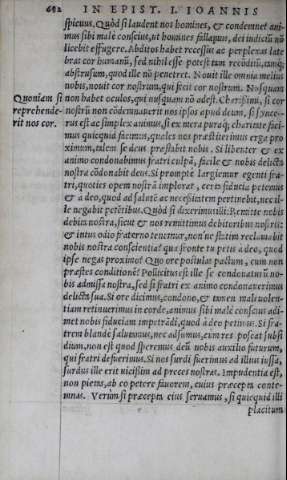 692 IN EPIST. I. IOANNIS
spicuus. Quòd si laudent nos homines, & condemnet ani-
mus sibi malè conscius, ut homines fallamus, dei iudiciū nō
licebit effugere. Abditos habet recessus ac perplexas late
bras cor humanū, sed nihil esse potest tam reconditū, tamq;
abstrusum, quod ille nō penetret. Nouit ille omnia melius
nobis, nouit cor nostrum, qui fecit cor nostrum. Nusquam
Quoniam si
non habet oculos, qui nusquam nō adest. Charissimi, si cor
reprehende-
nostrū non cōdemnauerit nos ipsos apud deum, si synce-
rit nos cor.
rus est ac simplex animus, si ex mera puraq; charitate faci-
mus quicquid facimus, quales nos præstiterimus erga pro
ximum, talem se deus præstabit nobis. Si libenter & ex
animo condonabimus fratri culpā, facile & nobis delicta
nostra cōdonabit deus. Si promptè largiemur egenti fra-
tri, quoties opem nostrā implorat, certa fiducia petemus
& à deo, quod ad salutē ac necessitatem pertinebit, nec il-
le negabit petētibus. Quòd si dixerimus illi: Remitte nobis
debita nostra, sicut & nos remittimus debitoribus nostris:
& intus odio fraterno teneamur, non'ne statim reclamabit
nobis nostra conscientia? qua fronte tu petis à deo, quod
ipse negas proximo? Quo ore postulas pactum, cum non
præstes conditionē? Pollicitus est ille se condonaturū no-
bis admissa nostra, sed si fratri ex animo condonauerimus
delicta sua. Si ore dicimus, condono, & tamen maleuolen-
tiam retinuerimus in corde, animus sibi malè conscius adi-
met nobis fiduciam impetrādi, quod à deo petimus. Si fra-
trem blandè salutemus, nec adsumus, cum res poscat subsi
dium, non est quod speremus deū nobis auxilio futurum,
qui fratri defuerimus. Si nos surdi fuerimus ad illius iussa,
surdus ille erit uicissim ad preces nostras. Impudentia est,
non pietas, ab eo petere fauorem, cuius præcepta conte-
mnas. Verùm si præcepta eius seruamus, si quicquid illi
placitum